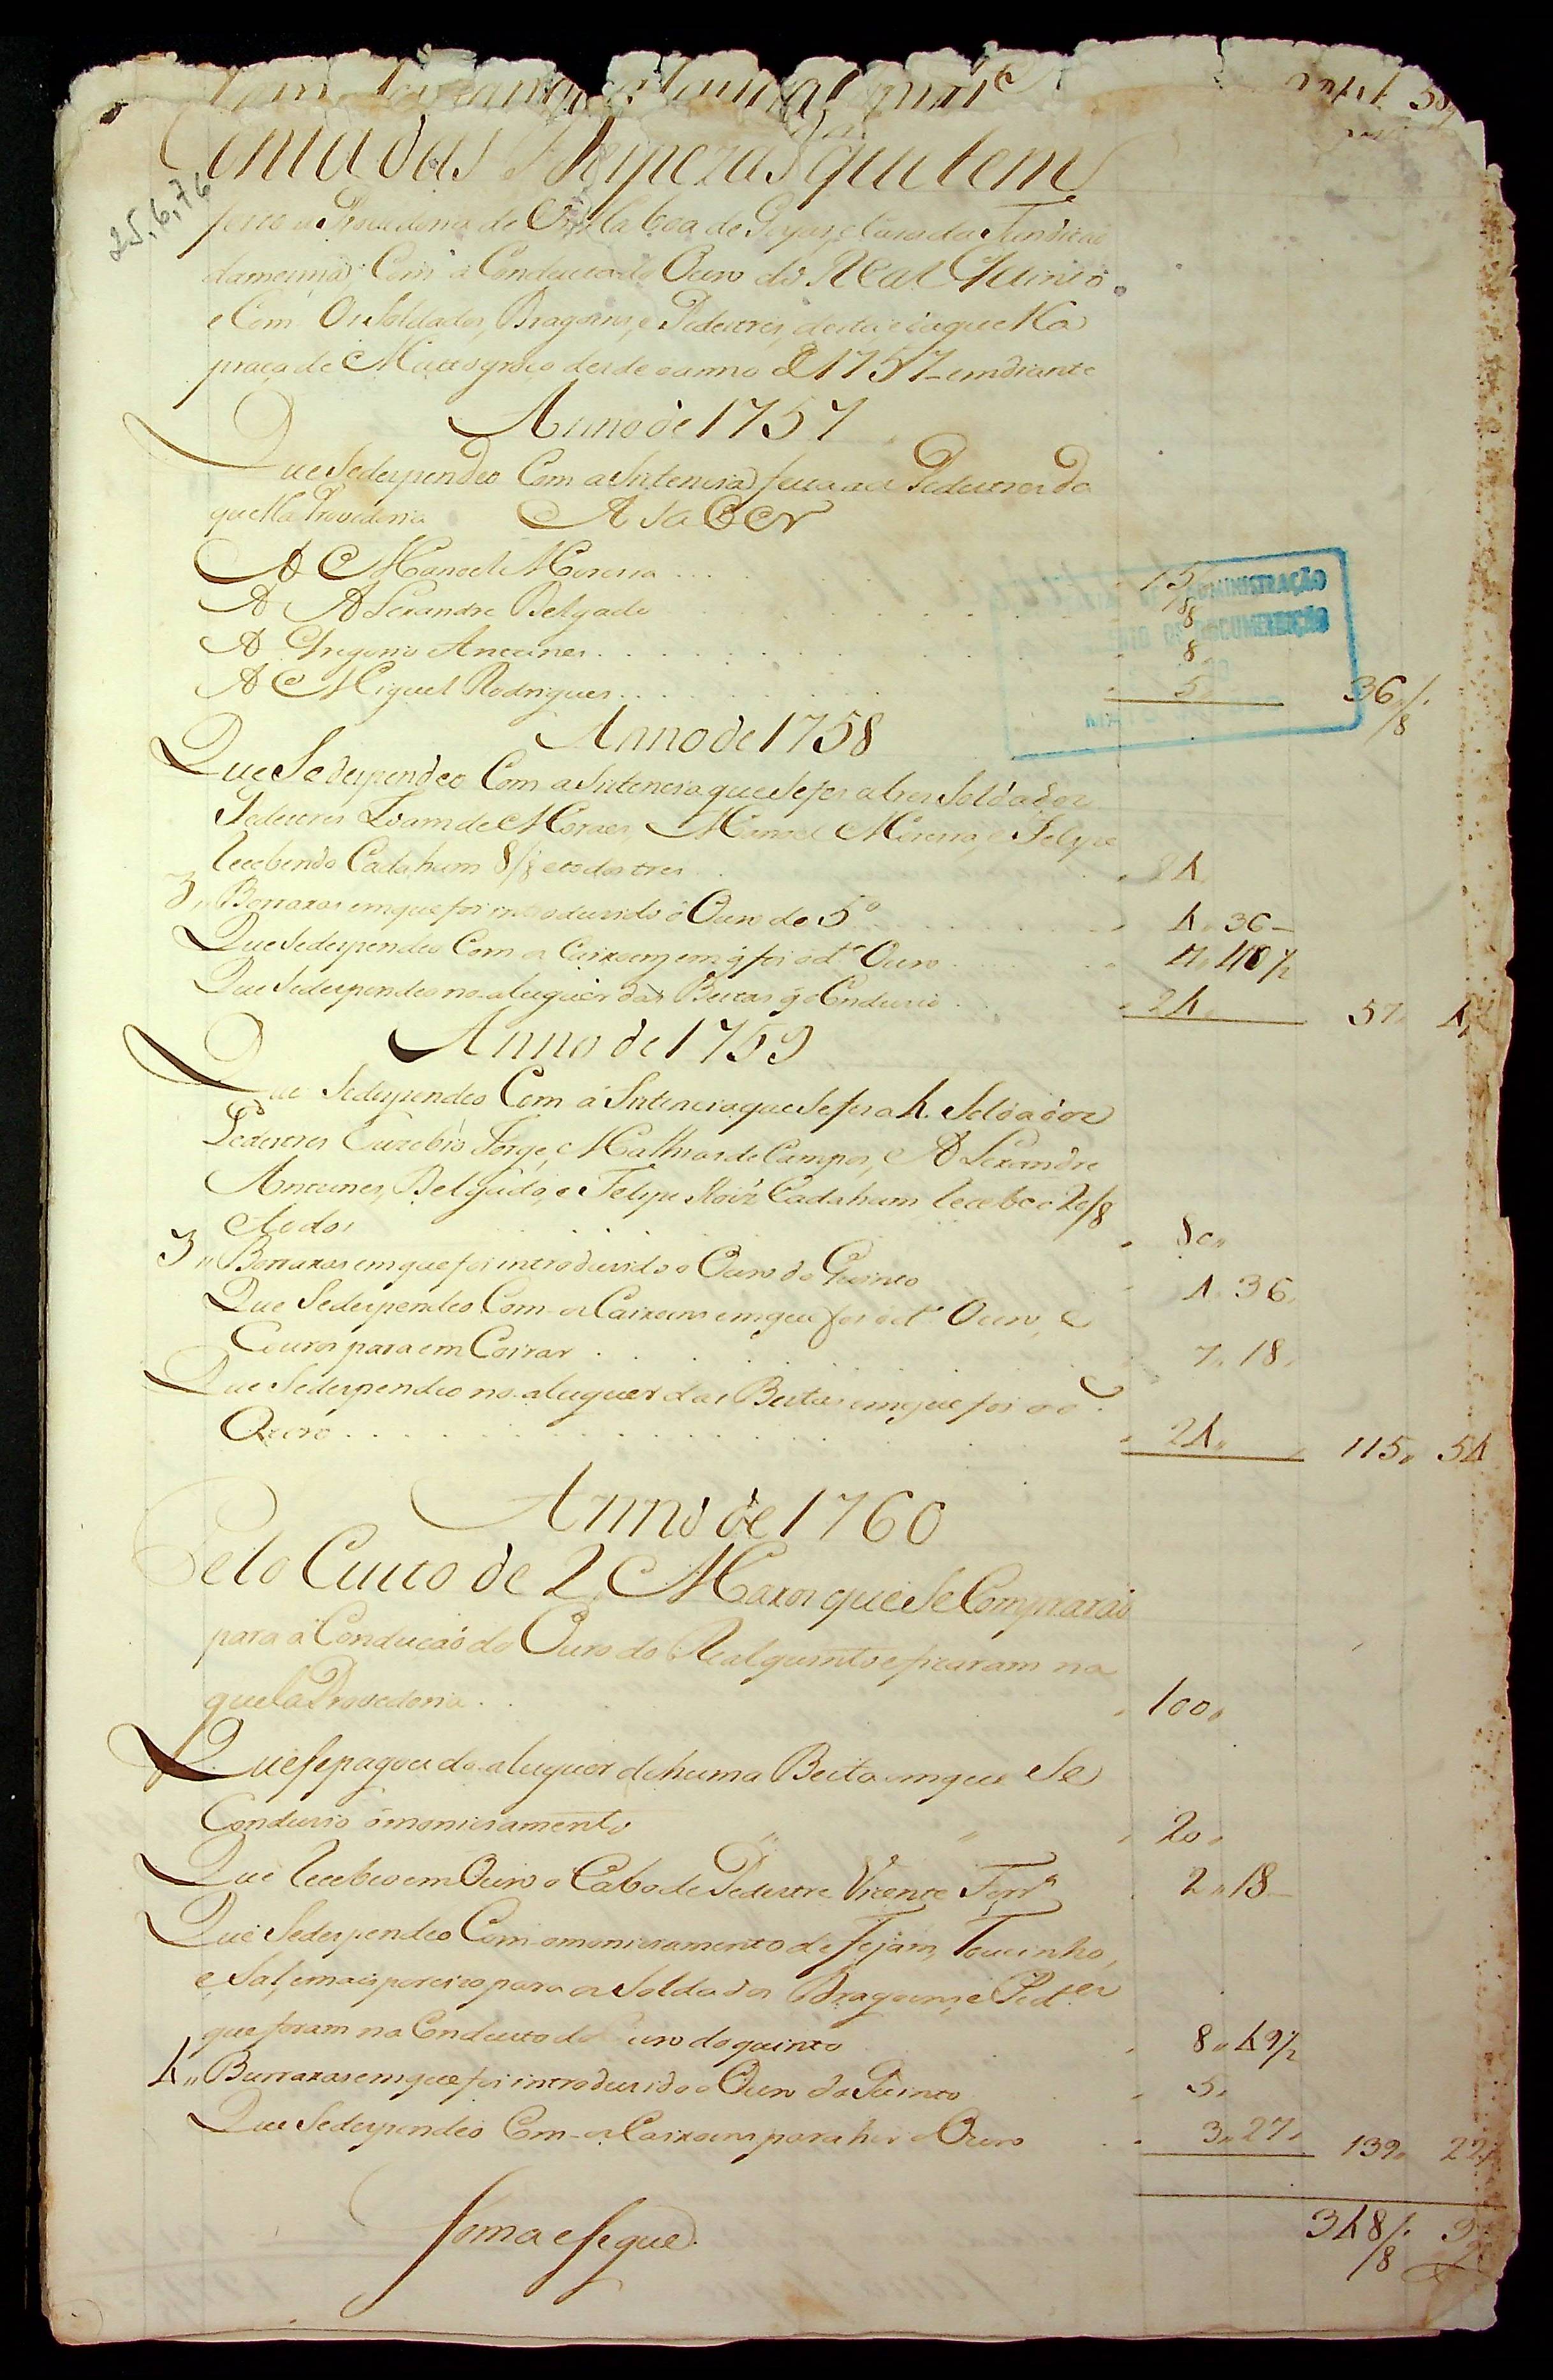 25,6,76
Conta das Despezas que tem
feito a Provedoria de Villa boa de Goyaz, e Caza da Fundição
da mesma, Com a Conducta do Ouro do Real Quinto
e Com Os Soldados, Dragoens, e Pedestres, desta, e daquella
praça de Mattogroço desde o anno de 1757 em diante
Anno de 1757
Que Se despendeo Com a Sistencia feita aos Pedestres da
quella Provedoria A Saber
A Manoel Moreira . . . . 15/8
A Alexandre Delgado 8
A Gregorio Antunes . . . . 8
A Miguel Rodrigues . . . . 5 36/8
ADMINISTRAÇÃO
DE DOCUMENTAÇÃO
Anno de 1758
Que Se despendeo Com a Sistencia que Se fes a tres Soldados
Pedestres Loam de Moraes, Manoel Moreira, e Felipe
Recebendo Cada hum 8/8 e todos tres 24
3,, Borraxas em que foi introduzido o Ouro do 5º 4,, 36
Que Se despendeo Com os Caixoens em q foi o dº Ouro 4,, 40 1/2
Que Se despendeo no aluguer das Bestas q o Conduzio 24 57,, 4
Anno de 1759
Que Se despendeo Com a Sistencia que Se fes a 4 Soldados
Pedestres Euzebio Jorge, Mathias de Campos, Alexandre
Antunes, Delgado, e Felipe Roiz Cada hum Recebeo 20/8
e todos 80,,
3,, Borraxas em que foi introduzido o Ouro do Quinto 4,, 36
Que Se despendeo Com os Caixoens em que foi o dº Ouro, e
Couros para em Coirar . . . . 7,, 18
Que Se despendeo no aluguer das Bestas em que foi o dº
Ouro . . . . 24,, 115,, 54
Anno de 1760
Pelo Custo de 2 Maxos que Se Comprarão
para a Condução do Ouro do Real quinto e ficaram na
quela Provedoria . . 100,,
Que se pagou do aluguer de huma Besta em que Se
Conduzio o moniciamento 20,,
Que Recebeo em Ouro o Cabo de Pedestre Vicente Ferrª 2,, 18
Que Se despendeo Com o moniciamento de Fejam, Toucinho,
e Sal, e mais percizo para os Soldados Dragoens, e Pedes
que foram na Conducta do Ouro do quinto 8,, 49 1/2
4,, Burraxas em que foi introduzido o Ouro do Quinto 5,,
Que Se despendeo Com os Caixoens para hir o Ouro 3,, 27 139,, 22
Soma e Segue 348/8